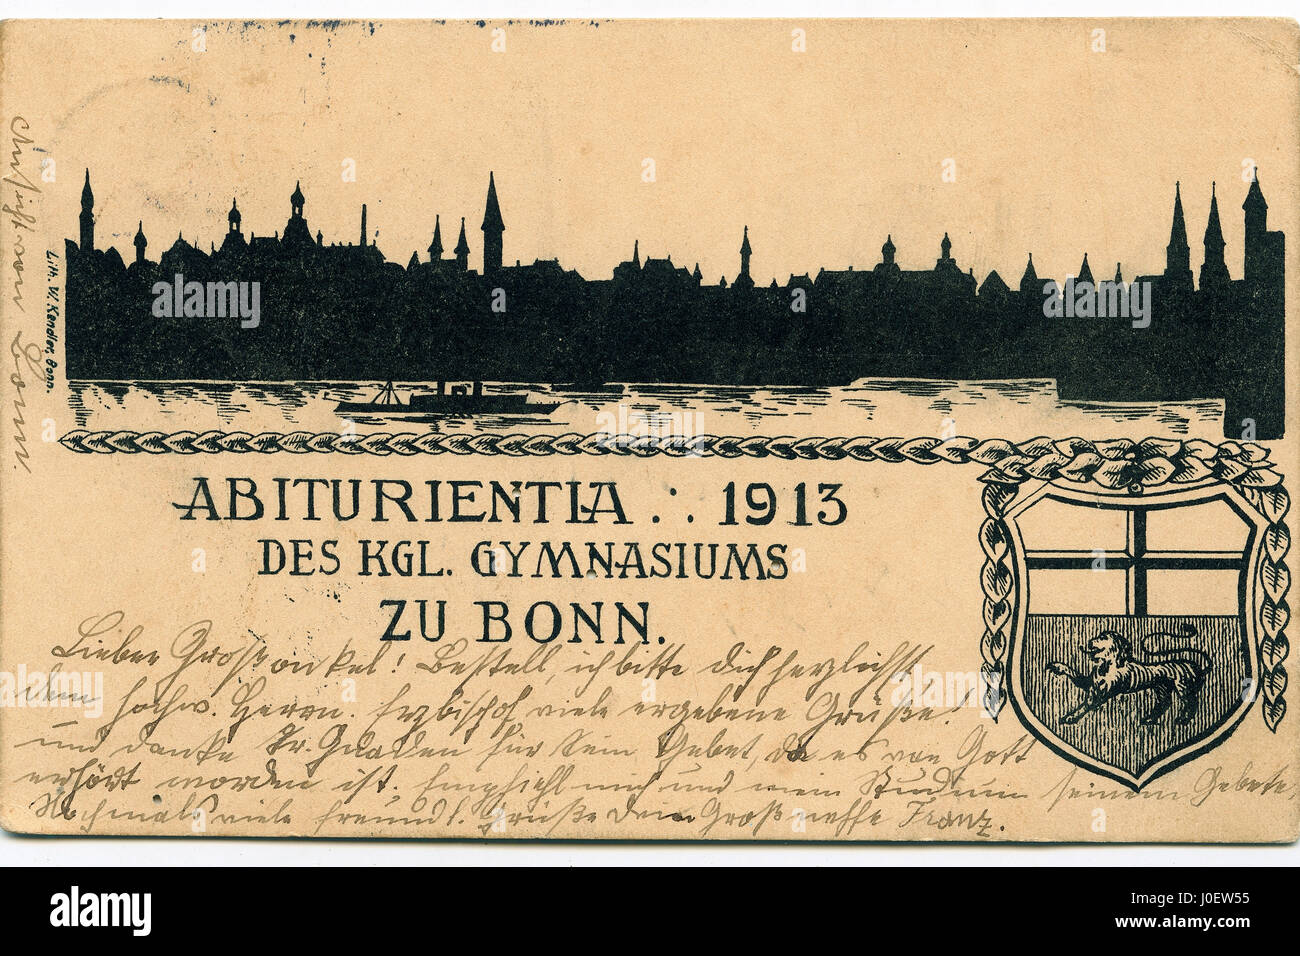 Lith. W. Kendler, Bonn.
ABITURIENTIA ∴ 1913
DES KGL. GYMNASIUMS
ZU BONN.
Lieber Großonkel! Bestell, ich bitte dich herzlichst,
dem hochw. Herrn. Erzbischof viele ergebene Grüße!
und danke Sr. Gnaden für sein Gebet, da es von Gott
erhört worden ist. Empfiehl mich und mein Studium seinem Gebete.
Nochmals viele freundl. Grüße Dein Großneffe Franz.
Bonn.
alamy
alamy stock photo
Image ID: J0EW55
www.alamy.com